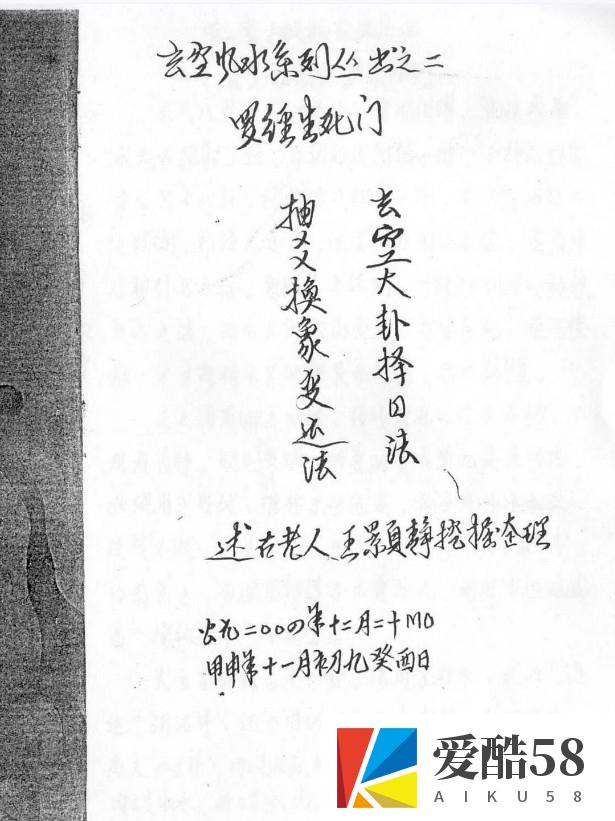 玄空风水系列丛书之二
罗经生死门
玄空大卦择日法
抽爻换象变运法
述古老人王顥静挖掘整理
公元二〇〇四年十二月二十
甲申年十一月初九癸酉日
爱酷58
AIKU58